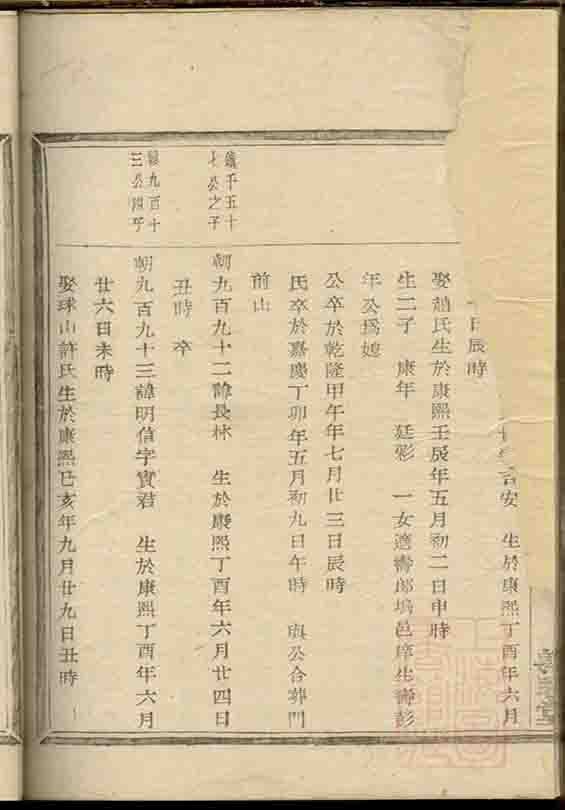 安 生於康熙丁酉年六月
日辰時
娶趙氏生於康熙壬辰年五月初二日申時
生二子 康年 廷彩 一女適壽郎塢邑庠生壽彭
年公爲媳
公卒於乾隆甲午年七月廿三日辰時
氏卒於嘉慶丁卯年五月初九日午時 與公合葬門
前山
千五十
七公之子
朝九百九十二諱長林 生於康熙丁酉年六月廿四日
丑時 卒
九百十
三公四子
朝九百九十三諱明信字實君 生於康熙丁酉年六月
廿六日未時
娶球山許氏生於康熙己亥年九月廿九日丑時